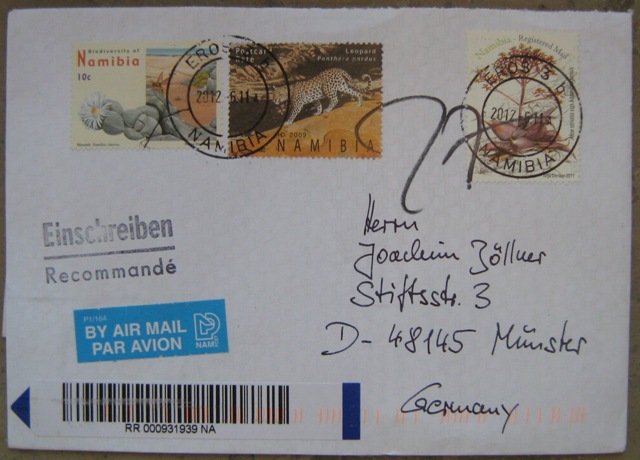 Biodiversity of
Namibia
10c
Postcard
Rate
Leopard
Panthera pardus
NAMIBIA
Namibia Registered Mail
EROS
2012
NAMIBIA
EROS
2012
NAMIBIA
Einschreiben
Recommandé
P1/164
BY AIR MAIL
PAR AVION
NAM
Herrn
Joachim Zöllner
Stiftsstr. 3
D-48145 Münster
Germany
RR 000931939 NA